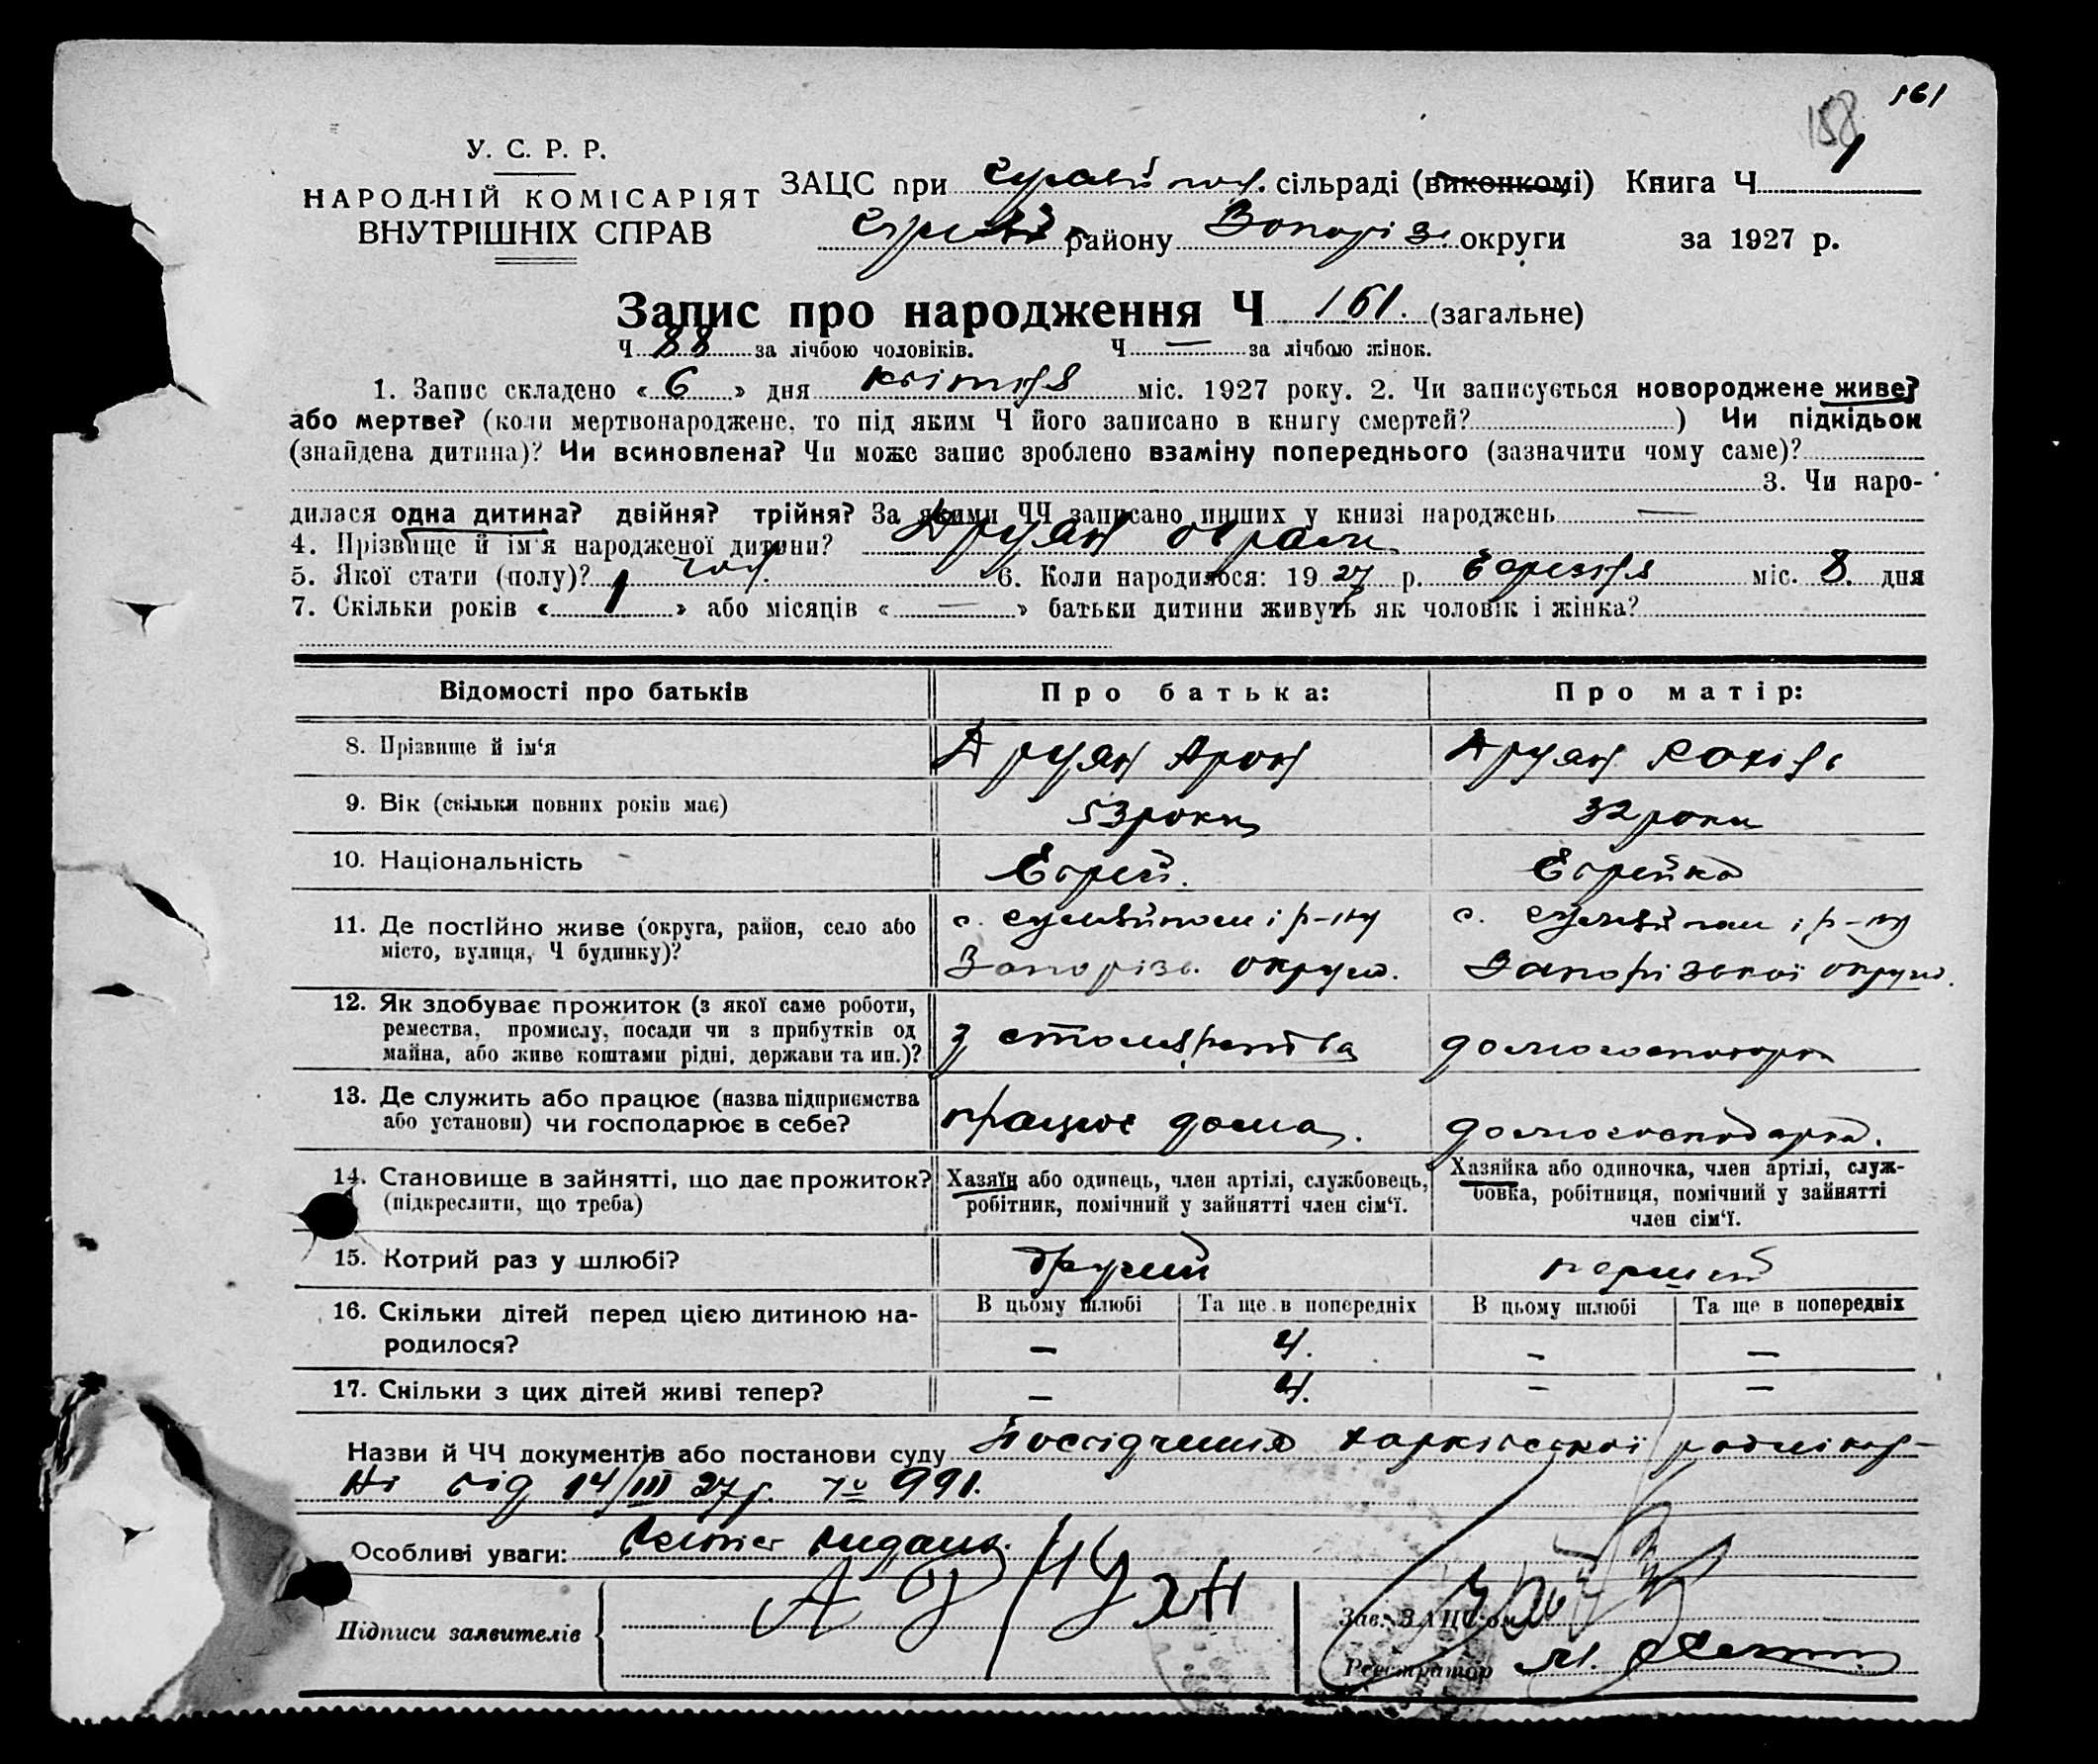 161
158
У. С. Р. Р.
НАРОДНІЙ КОМІСАРІЯТ
ВНУТРІШНІХ СПРАВ
ЗАЦС при сільраді (виконкомі) Книга Ч 1
району Запоріз. округи за 1927 р.
Запис про народження Ч 161. (загальне)
Ч 88 за лічбою чоловіків. Ч — за лічбою жінок.
1. Запис складено « 6 » дня квітня міс. 1927 року. 2. Чи записується новороджене живе?
або мертве? (коли мертвонароджене, то під яким Ч його записано в книгу смертей? ) Чи підкідьок
(знайдена дитина)? Чи всиновлена? Чи може запис зроблено взаміну попереднього (зазначити чому саме)?
3. Чи наро-
дилася одна дитина? двійня? трійня? За якими ЧЧ записано инших у книзі народжень —
4. Прізвище й ім'я народженої дитини? Друян
5. Якої стати (полу)? чол. 6. Коли народилося: 1927 р. березня міс. 8. дня
7. Скільки років « 1 » або місяців « — » батьки дитини живуть як чоловік і жінка?
Відомості про батьків Про батька: Про матір:
8. Прізвище й ім'я Друян Арон Друян Рахіль
9. Вік (скільки повних років має) 53 роки 32 роки
10. Національність Еврей. Еврейка
11. Де постійно живе (округа, район, село або
місто, вулиця, Ч будинку)?
с. р-ну с. р-ну
Запорізь. округи. Запорізької округи.
12. Як здобуває прожиток (з якої саме роботи,
ремества, промислу, посади чи з прибутків од
майна, або живе коштами рідні, держави та ин.)?
з столярства домогосподарка
13. Де служить або працює (назва підприємства
або установи) чи господарює в себе?
працює дома. домогосподарка.
14. Становище в зайнятті, що дає прожиток?
(підкреслити, що треба)
Хазяїн або одинець, член артілі, службовець,
робітник, помічний у зайнятті член сім'ї.
Хазяйка або одиночка, член артілі, служ-
бовка, робітниця, помічний у зайнятті
член сім'ї.
15. Котрий раз у шлюбі? другий перший
16. Скільки дітей перед цією дитиною на-
родилося?
В цьому шлюбі Та ще в попередніх В цьому шлюбі Та ще в попередніх
— 4. — —
17. Скільки з цих дітей живі тепер? — 4. — —
Назви й ЧЧ документів або постанови суду Посвідчення Харківської
ні від 14/III 27 р. № 991.
Особливі уваги:
Підписи заявителів
Зав. ЗАЦС'ом
Реєстратор